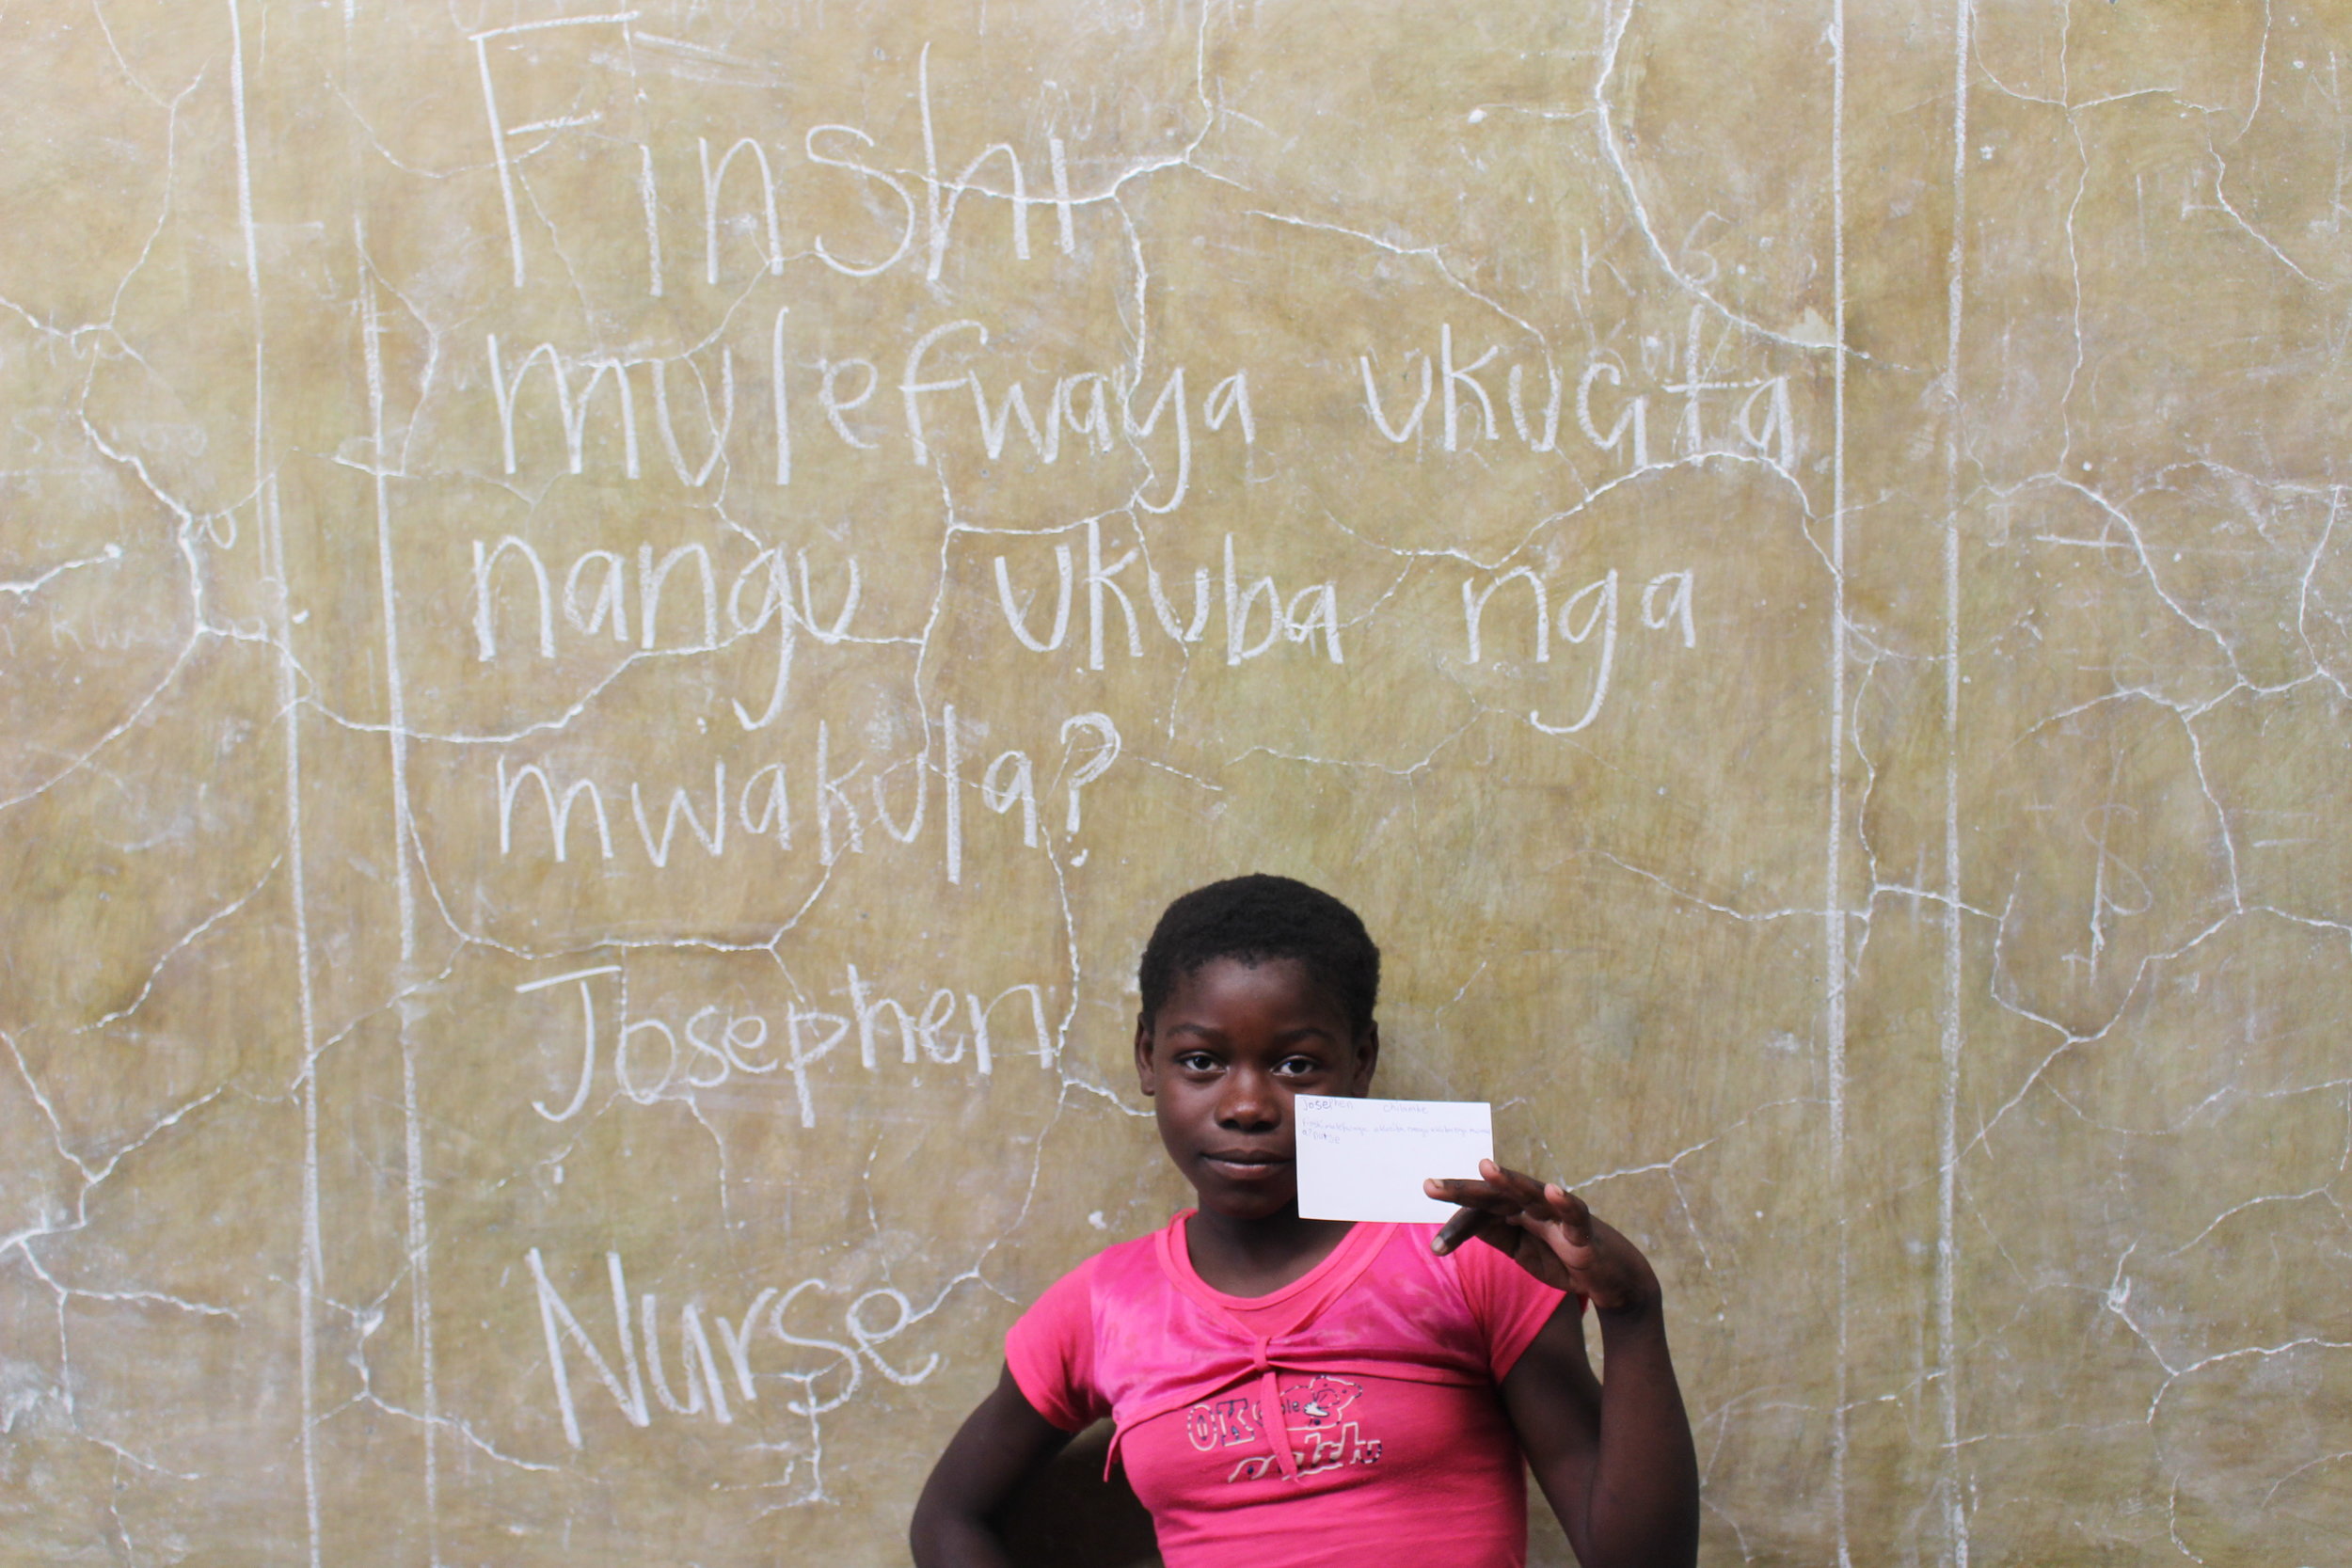 Finshi
mulefwaya ukucita
nangu ukuba nga
mwakula?
Josephen
Nurse
Josephen
nurse